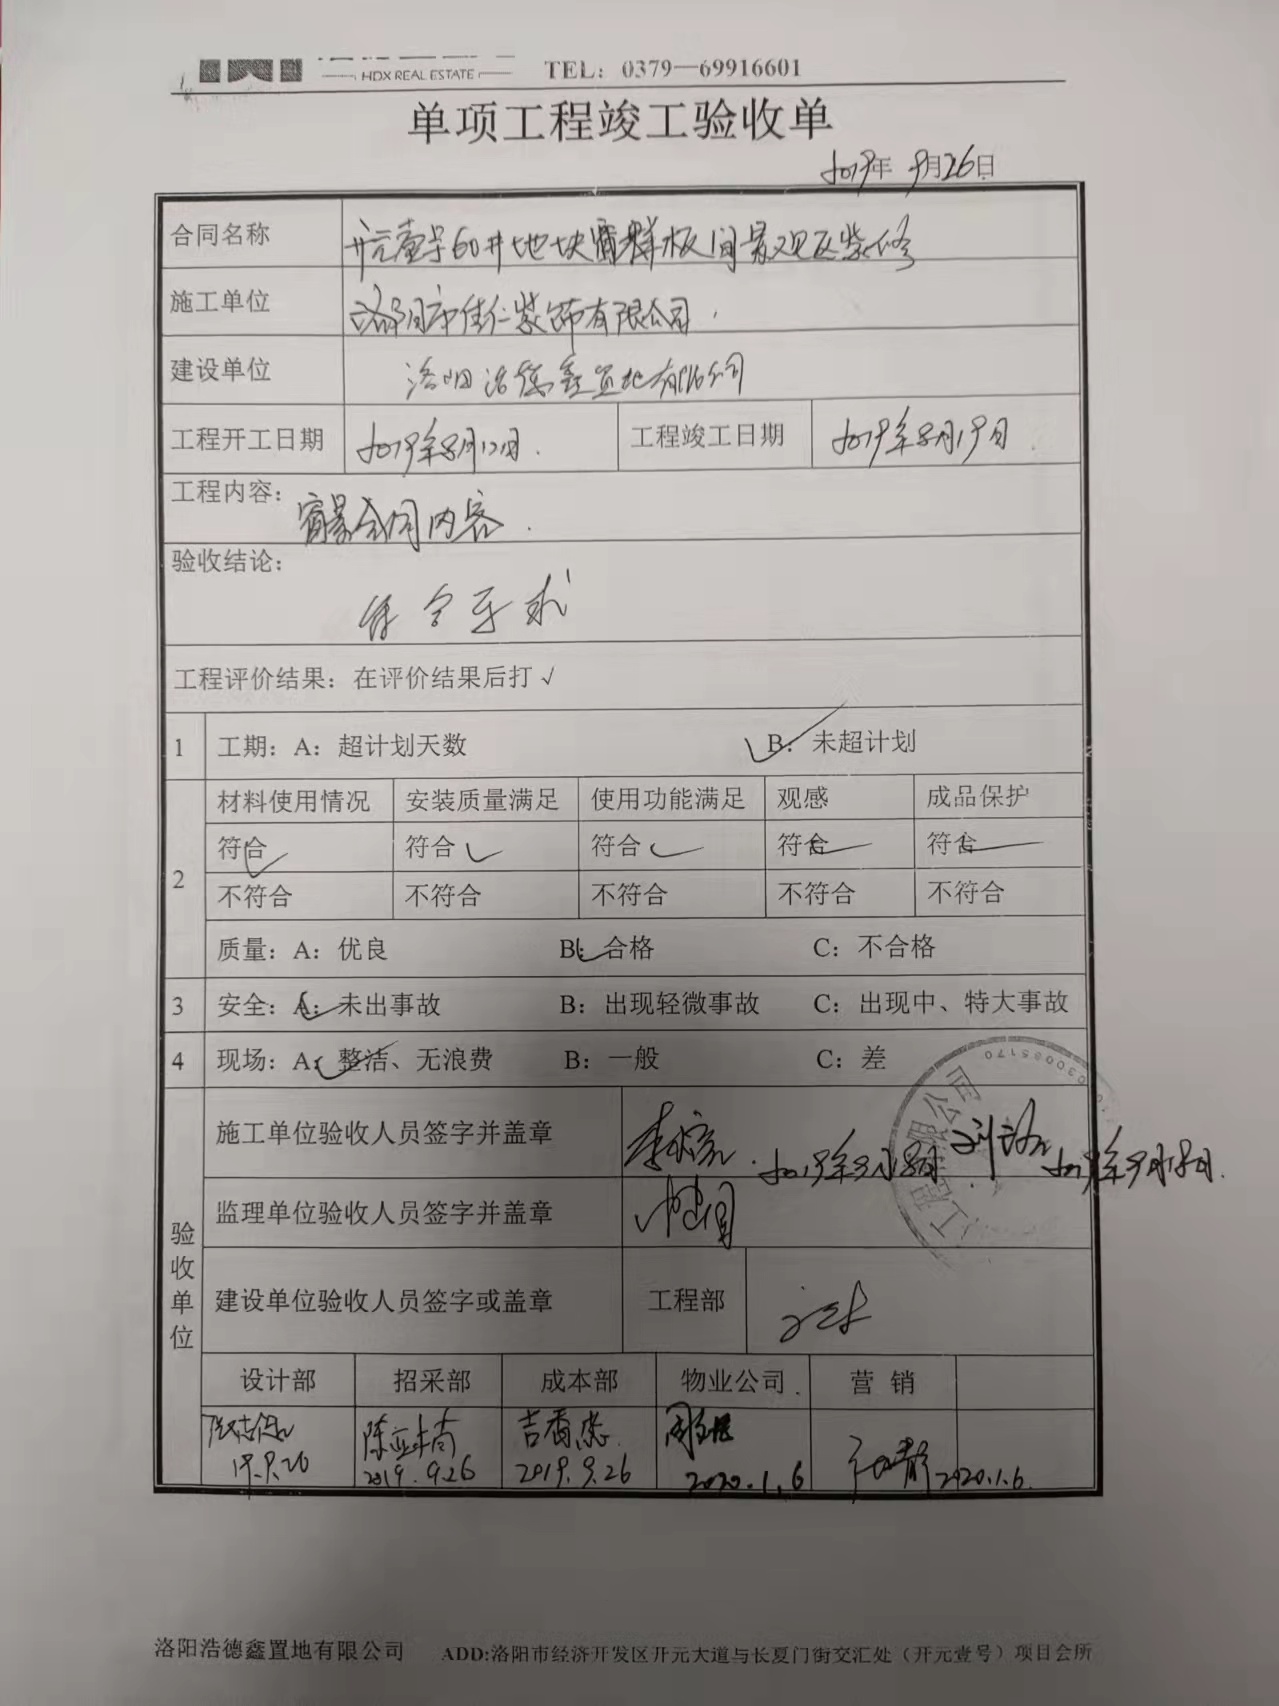 HDX REAL ESTATE TEL：0379—69916601
单项工程竣工验收单
2019年 9月26日
合同名称 开元壹号60井地块 样板间景观区装修
施工单位 洛阳市佳仁装饰有限公司
建设单位 洛阳浩德鑫置地有限公司
工程开工日期 2019年8月12日. 工程竣工日期 2019年8月19日
工程内容： 合同内容.
验收结论：
符合要求
工程评价结果：在评价结果后打√
1 工期：A：超计划天数 B：未超计划
材料使用情况 安装质量满足 使用功能满足 观感 成品保护
符合 符合 符合 符合 符合
2
不符合 不符合 不符合 不符合 不符合
质量：A：优良 B：合格 C：不合格
3 安全：A：未出事故 B：出现轻微事故 C：出现中、特大事故
4 现场：A：整洁、无浪费 B：一般 C：差
施工单位验收人员签字并盖章
监理单位验收人员签字并盖章
验收单位
建设单位验收人员签字或盖章 工程部
设计部 招采部 成本部 物业公司 营 销
19.9.26 2019.9.26 2019.9.26 2020.1.6 2020.1.6
洛阳浩德鑫置地有限公司 ADD:洛阳市经济开发区开元大道与长夏门街交汇处（开元壹号）项目会所